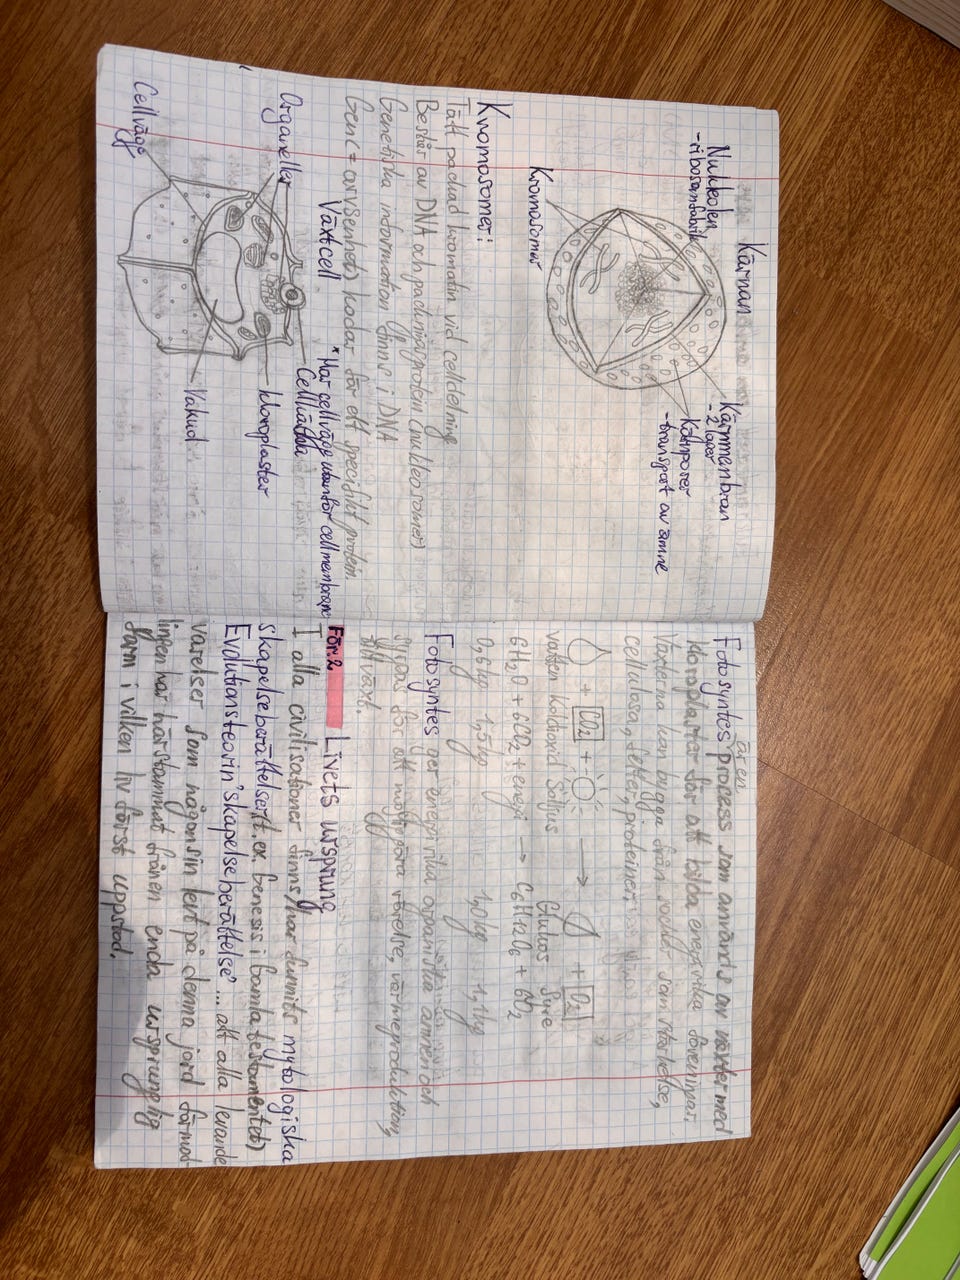 Kärnan
Nukleolen
-ribosomfabrik
Kärnmembran
-2 lager
Kärnporer
-transport av ämne
Kromosomer
Kromosomer:
Tätt packad kromatin vid celldelning
Består av DNA och packningsprotein (nukleosomer)
Genetiska information finns i DNA
Gen (= arvsenhet) kodar för ett specifikt protein
Växtcell
*Har cellvägg utanför cellmembran
Organeller
Cellvätska
kloroplaster
Cellvägg
Vakuol
är en
Fotosyntes process som används av växter med
kloroplaster för att bilda energirika föreningar.
Växterna kan bygga från socker som stärkelse,
cellulosa, fetter, proteiner.
+ CO2 + → + O2
vatten koldioxid Solljus Glukos Syre
6H2O + 6CO2 + energi → C6H12O6 + 6O2
0,6kg 1,5kg 1,0kg 1,1kg
Fotosyntes ger energirika organiska ämnen och
syras för att möjliggöra rörelse, värmeproduktion,
tillväxt.
För.2 Livets ursprung
I alla civilisationer finns/har funnits mytologiska
skapelseberättelser(t.ex. Genesis i Gamla testamentet)
Evolutionsteorin "skapelseberättelse" ... att alla levande
varelser som någonsin levt på denna jord förmod-
ligen har härstammat från en enda ursprunglig
form i vilken liv först uppstod.